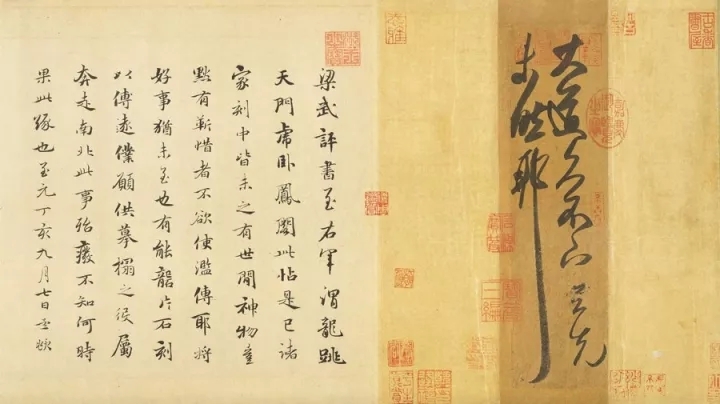 大道久不下与先
未然耶
梁武評書至右軍謂龍跳
天門虎卧鳳閣此帖是已諸
家刻中皆未之有世間神物豈
黙有靳惜者不欲使濫傳耶將
好事猶未至也有能礱片石刻
以傳遠僕願供摹搨之役屬
奔走南北此事殆廢不知何時
果此緣也至元丁亥九月七日孟頫